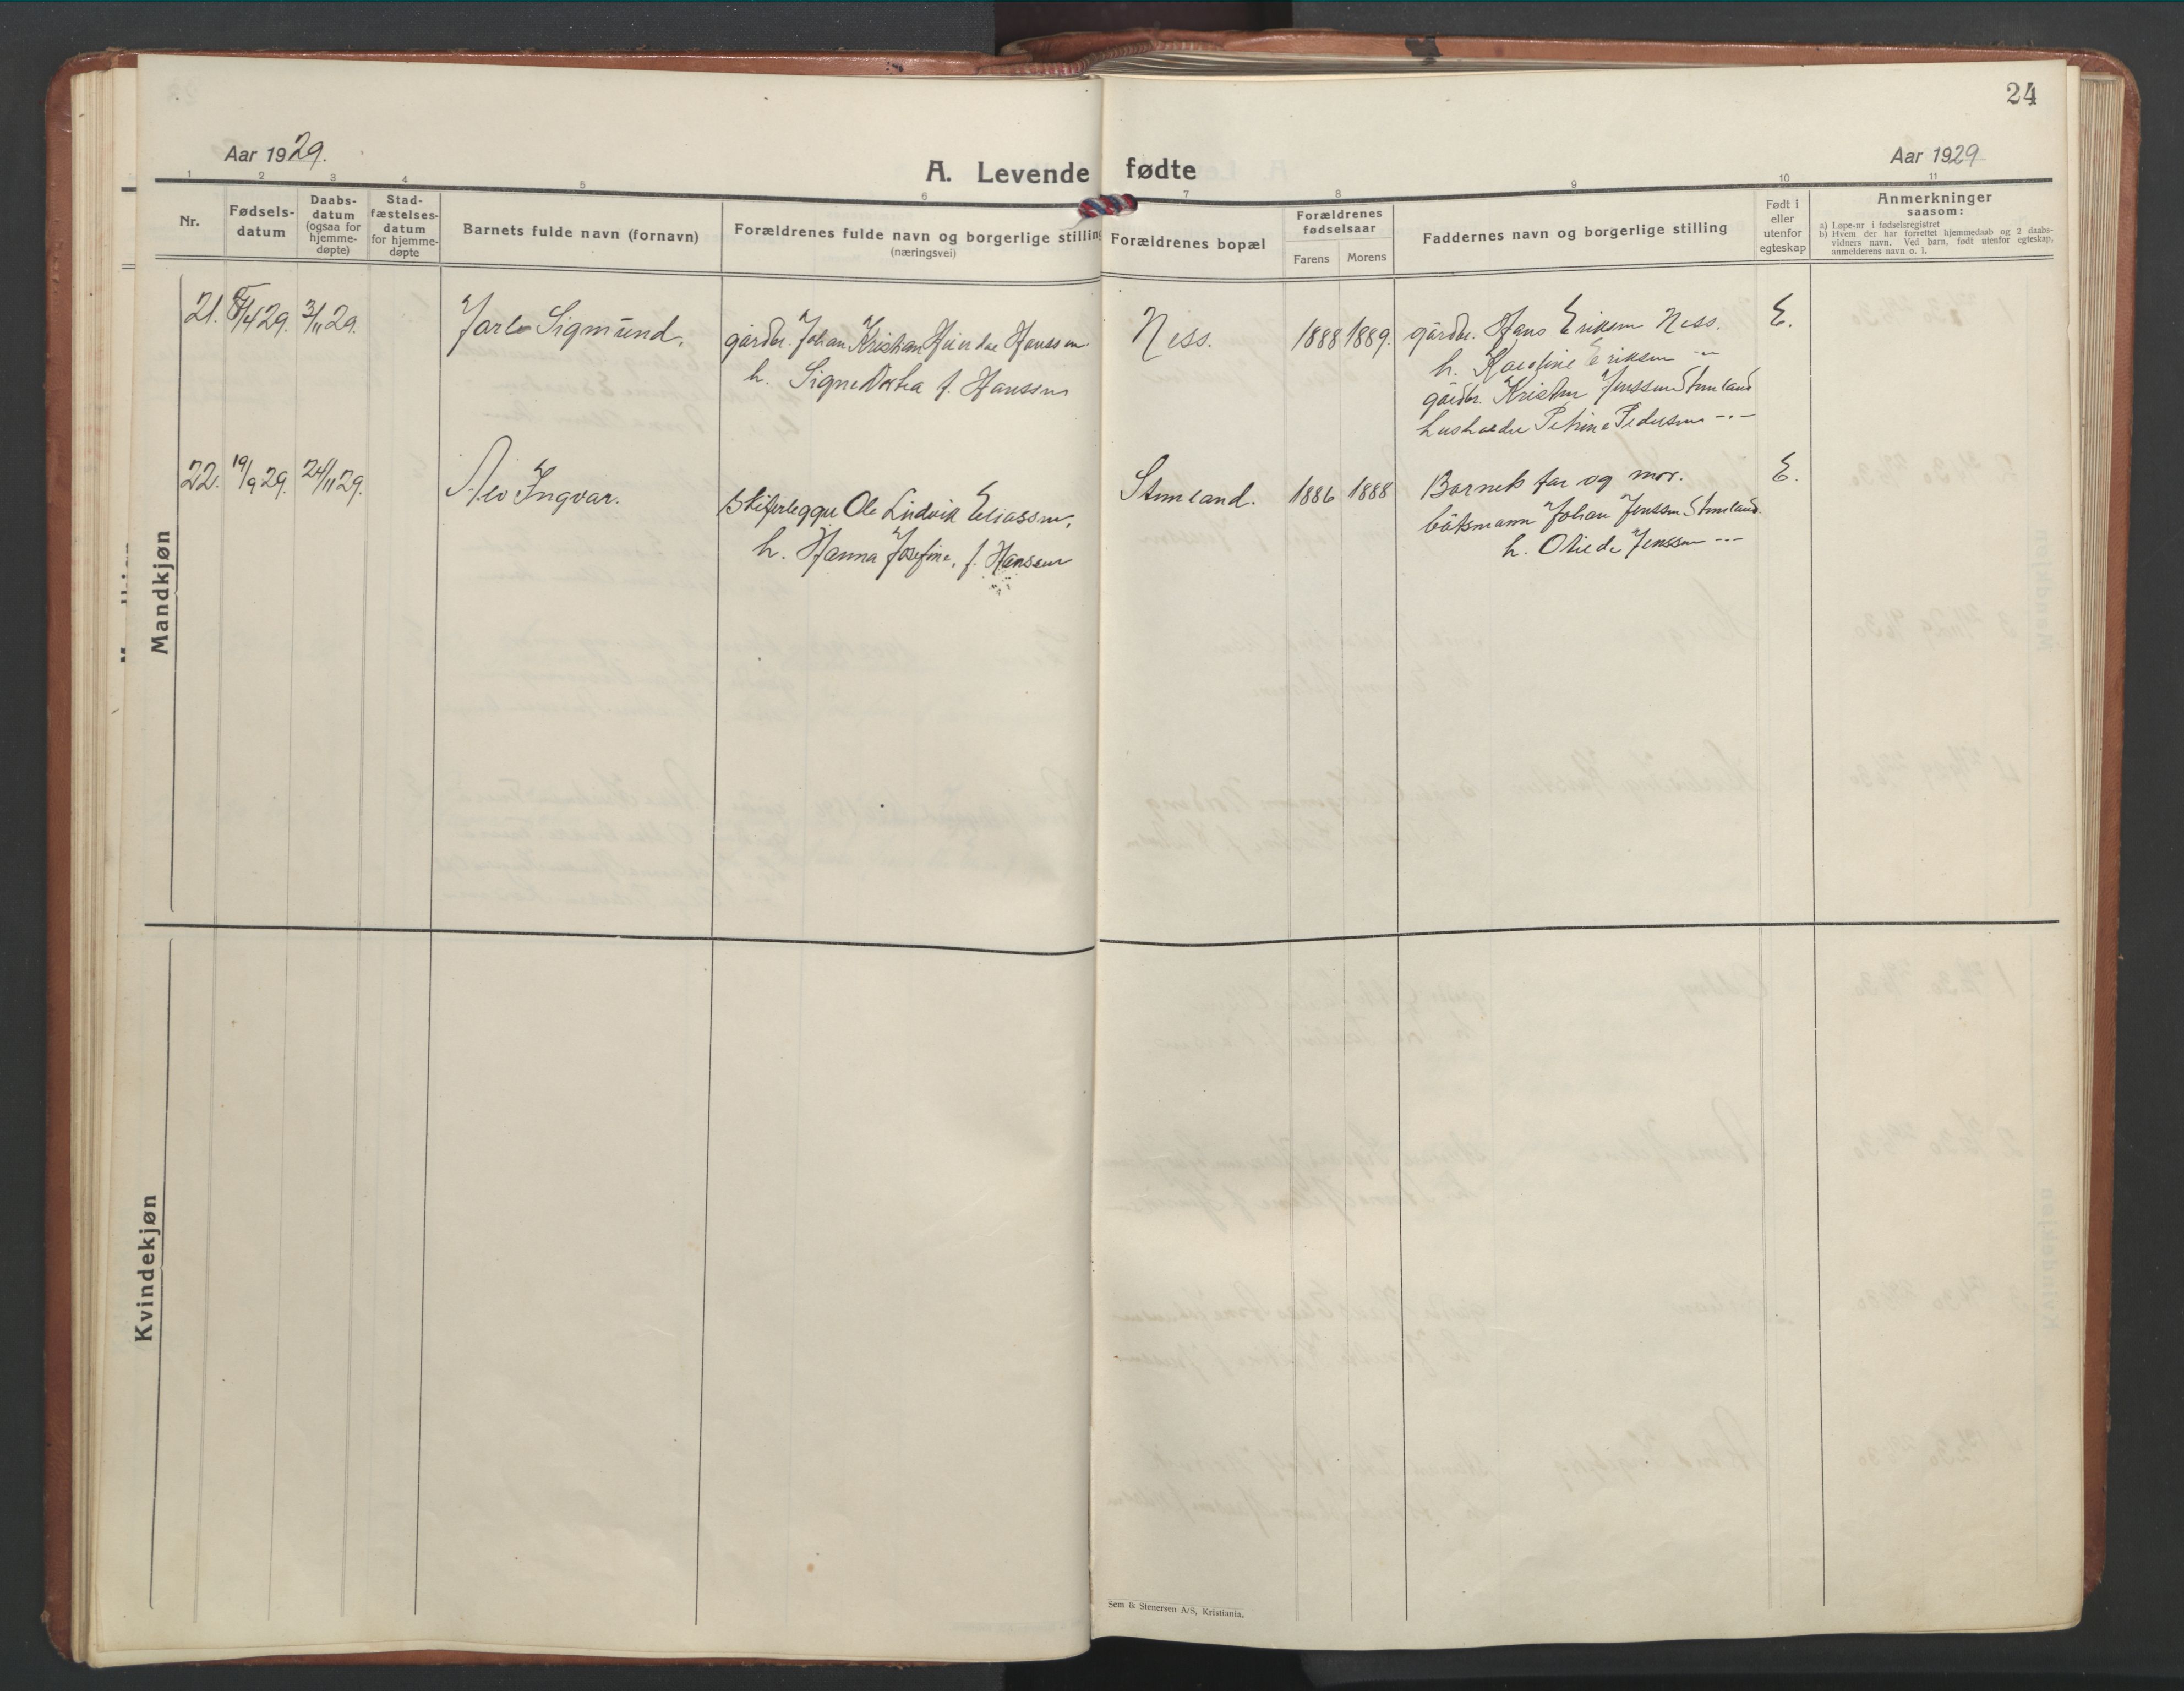 24
Aar 1929.
A. Levende fødte
Aar 1929
1 2 3 4 5 6 7 8 9 10 11
Nr.
Fødsels-
datum
Daabs-
datum
(ogsaa for
hjemme-
døpte)
Stad-
fæstelses-
datum
for hjemme-
døpte
Barnets fulde navn (fornavn)
Forældrenes fulde navn og borgerlige stilling
(næringsvei)
Forældrenes bopæl
Forældrenes
fødselsaar
Farens Morens
Faddernes navn og borgerlige stilling
Født i
eller
utenfor
egteskap
Anmerkninger
saasom:
a) Løpe-nr i fødselsregistret
b) Hvem der har forrettet hjemmedaab og 2 daabs-
vidners navn. Ved barn, født utenfor egteskap,
anmelderens navn o. l.
Mandkjøn
21. 29. 3/11 29.
Jarle Sigmund.
gårdbr. Johan Kristian Hansen.
h. Signe Dortea f. Hanssen
Ness.
1888 1889.
gårdbr. Hans Eriksen Ness.
h. Karoline Eriksen -"-
gårdbr. Kristen Jenssen
Petrine Pedersen -"-
E.
22. 19/9 29. 24/11 29.
Ingvar.
Skiferlegger Ole Ludvik Eliassen,
h. Hanna Josefine, f. Hansen
1886 1888
Barnets far og mor.
båtsmann Johan Jenssen
h. Jenssen -"-
E.
Kvindekjøn
Sem & Stenersen A/S, Kristiania.